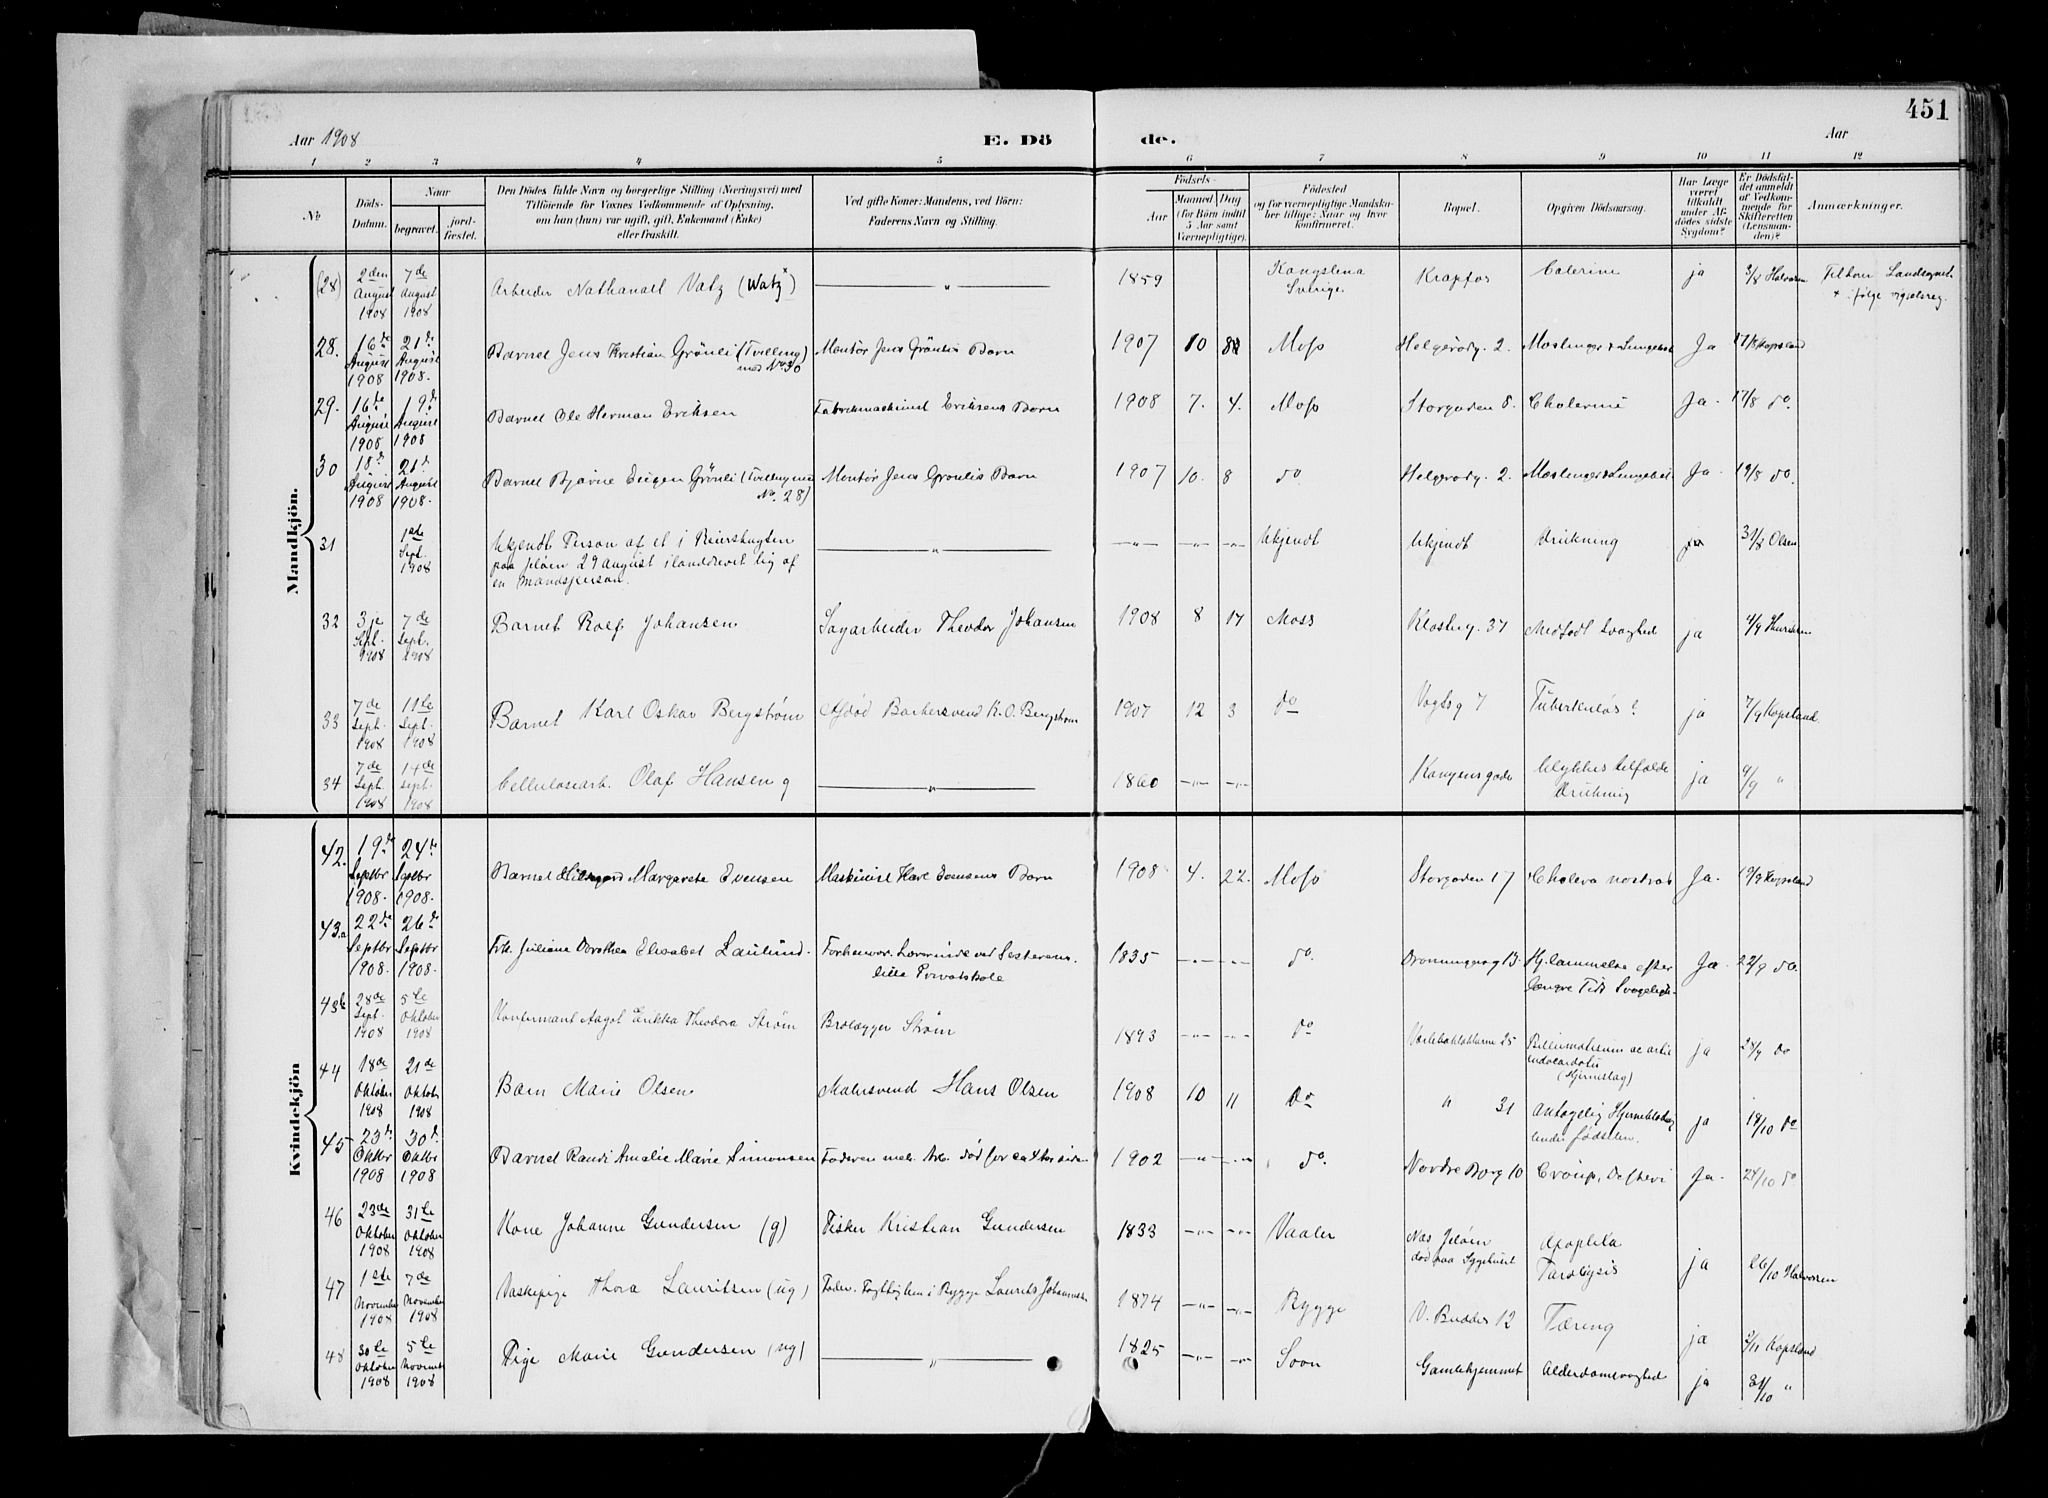 451
Aar 1908
E. Dö de.
Aar
1 2 3 4 5 6 7 8 9 10 11 12
No
Döds-Datum.
Naar begravet. jord-fæstet.
Den Dödes fulde Navn og borgerlige Stilling (Næringsvei) med
Tilföiende for Voxnes Vedkommende af Oplysning,
om han (hun) var ugift, gift, Enkemand (Enke)
eller fraskilt.
Ved gifte Koner: Mandens, ved Börn:
Faderens Navn og Stilling.
Födsels-
Aar Maaned Dag
(for Börn indtil 5 Aar samt Værnepligtige).
Födested
og for værnepligtige Mandskaber tillige: Naar og hvor konfirmeret.
Bopæl.
Opgiven Dödsaarsag.
Har Læge været tilkaldt under Afdödes sidste Sygdom?
Er Dödsfaldet anmeldt af Vedkommende for Skifteretten (Lensmanden)?
Anmærkninger.
Mandkjön.
(28) 2den August 1908 7de August 1908 Arbeider Nathanael Vatz (Watz) — " — 1859 Kongslena Sverige Krapfos Colerine ja 3/8 Halvorsen Tilhører Landsognet
+ ifølge vigselsreg.
28. 16de August 1908 21de August 1908. Barnet Jens Kristian Grönli (Tvilling med No 30 Montør Jens Grönlis Barn 1907 10 8 Moss Helgerödg. 2. Meslinger & Ja 17/8 Kopsland
29. 16de August 1908 19de August 1908 Barnet Ole Herman Eriksen Fabrikmaskinist Eriksens Barn 1908 7. 4. Moss Storgaden 8. Cholerine Ja. 17/8 do.
30 18de August 1908 21de August 1908. Barnet Bjarne Eugen Grönli (Tvilling med No. 28) Montør Jens Grönlis Barn 1907 10. 8 do Helgerödg. 2. Meslinger & Ja. 19/8 do.
31 1ste Sept. 1908 Ukjendt Person af et i Reierbugten
paa Jeløen 29 August ilanddrevet lig af
en mandsperson. — " — Ukjendt Ukjendt Drukning ja 31/8 Olsen
32 3je Sept. 1908 7de Sept. 1908 Barnet Rolf Johansen Sagarbeider Theodor Johansen 1908 8 17 Moss Klosterg. 37 Medfødt Svaghed ja 4/9
33 7de Sept. 1908 11te Sept. 1908 Barnet Karl Oskar Bergstrøm Afdød Barbersvend K.O. Bergstrøm 1907 12 3 do Vogtsg 7 Tuberkuløs? ja 7/9 Kopsland
34 7de Sept. 1908 14de Sept. 1908 Cellulosearb. Olaf Hansen g — " — 1860 — " — — " — Kongensgade Ulykkestilfælde
Drukning ja 9/9 "
Kvindekjön
42. 19de Septbr 1908. 24de Septbr 1908. Barnet Margarete Evensen Maskinist Evensens Barn 1908 4. 22. Moss Storgaden 17 Cholera nostras Ja. 19/9 Kopsland
43.a 22de Septbr 1908. 26de Septbr 1908. Frk. Juliane Dorothea Elisabet Laulund. Forhenvær. Lærerinde ved Søsterens
lille Privatskole 1835 — " — — " — do. Dronningensg 13. Hj. lammelse efter
længre Tids Ja. 22/9 do.
43b 28de Sept. 1908 5te Oktober 1908 Konfirmant Aagot Erikka Theodora Strøm Brolægger Strøm 1893 — " — — " — do 25
(Hjerneslag) ja 28/9 do
44 18de Oktober 1908 21de Oktober 1908 Barn Marie Olsen Malersvend Hans Olsen 1908 10 11 do " 31 Antagelig
under fødselen. ja 19/10 do
45 23de Oktbr 1908 30de Oktbr 1908 Barnet Randi Amalie Marie Simonsen Faderen død for 1902 — " — — " — do. Nordre 10 Croup, Defteri Ja. 24/10 do
46 23de Oktober 1908 31te Oktober 1908 Kone Johanne Gundersen (g) Fisker Kristian Gundersen 1833 — " — — " — Vaaler Nes Jeløen
død paa Sygehuset Apoplexia ja 26/10 Halvorsen
47 1ste November 1908 7de November 1908 Vaskepige Thora Lauritsen (ug) Fader. i Rygge Laurits 1874 — " — — " — Rygge V. Buddes 12 Tæring ja 2/11 Kopsland
48 30te Oktober 1908 5te Novemb 1908 Pige Marie Gundersen (ug) — " — 1825 — " — — " — Soon Gamlehjemmet Alderdomssvaghed ja 31/10 "